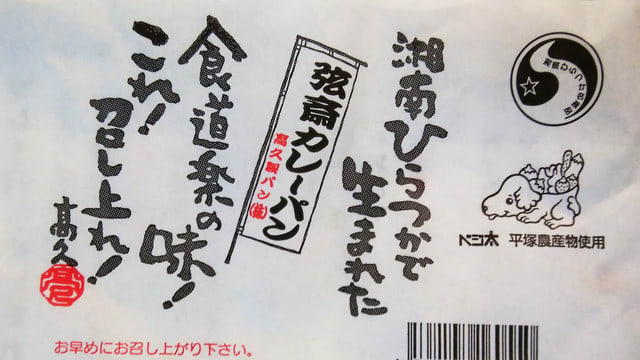 湘南ひらつかで
生まれた
弦斎カレーパン
高久製パン(株)
食道楽の
味!
これ!
召し上れ!
高久
ベジ太 平塚農産物使用
お早めにお召し上がり下さい。